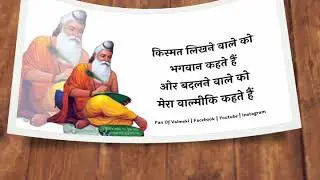 किस्मत लिखने वाले को
भगवान कहते हैं
ओर बदलने वाले को
मेरा वाल्मीकि कहते हैं
Fan Of Valmeki | Facebook | Youtube | Instagram